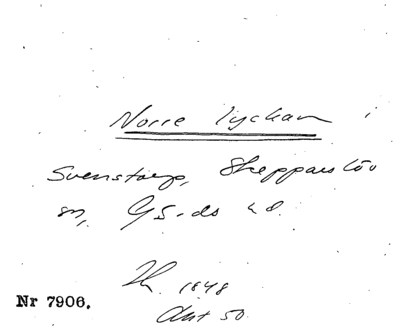 Norre lyckan i
Svenstorp, Skepparslöv
sn, Gärds hd.
Th. 1848
Akt 50.
Nr 7906.